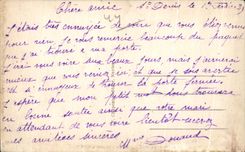 Chère amie St Denis le
J'étais très ennuyée de voir que vous étiez venue
pour rien, je vous remercie beaucoup du paquet
que j'ai trouvé à ma porte.
J'irai vous voir un de ces jours mais j'aimerais
mieux que vous veniez et que je sois avertie
c'est ennuyeux de trouver la porte fermée.
J'espère que mon petit mot vous trouvera
en bonne santé ainsi que votre mari
en attendant de vous voir bientôt recevez
mes amitiés sincères
Mme